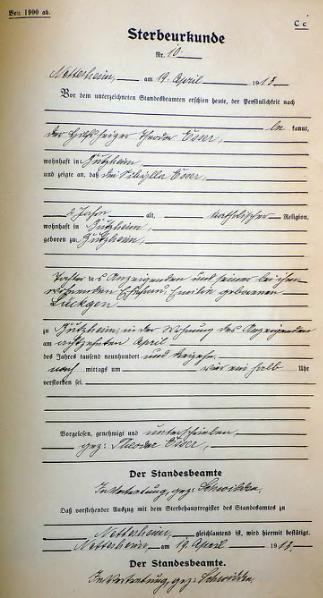 Von 1900 ab.
C c
Sterbeurkunde
Nr. 10
Nettersheim, am 19 April 1913
Vor dem unterzeichneten Standesbeamten erschien heute, der Persönlichkeit nach
be kannt,
der Theodor Esser,
wohnhaft in
und zeigte an, daß Esser,
2 Jahre alt, katholischer Religion,
wohnhaft in
geboren zu
Tochter des Anzeigenden und seiner bei ihm
wohnenden Ehefrau geborenen
Lückgen
zu in der Wohnung des Anzeigenden
am achtzehnten April
des Jahres tausend neunhundert und dreizehn
nach mittags um vier ein halb Uhr
verstorben sei.
Vorgelesen, genehmigt und unterschrieben
gez: Theodor Esser,
Der Standesbeamte
In Vertretung, gez.
Daß vorstehender Auszug mit dem Sterbehauptregister des Standesamts zu
Nettersheim gleichlautend ist, wird hiermit bestätigt.
Nettersheim, am 19 April 1913.
Der Standesbeamte.
In Vertretung, gez.